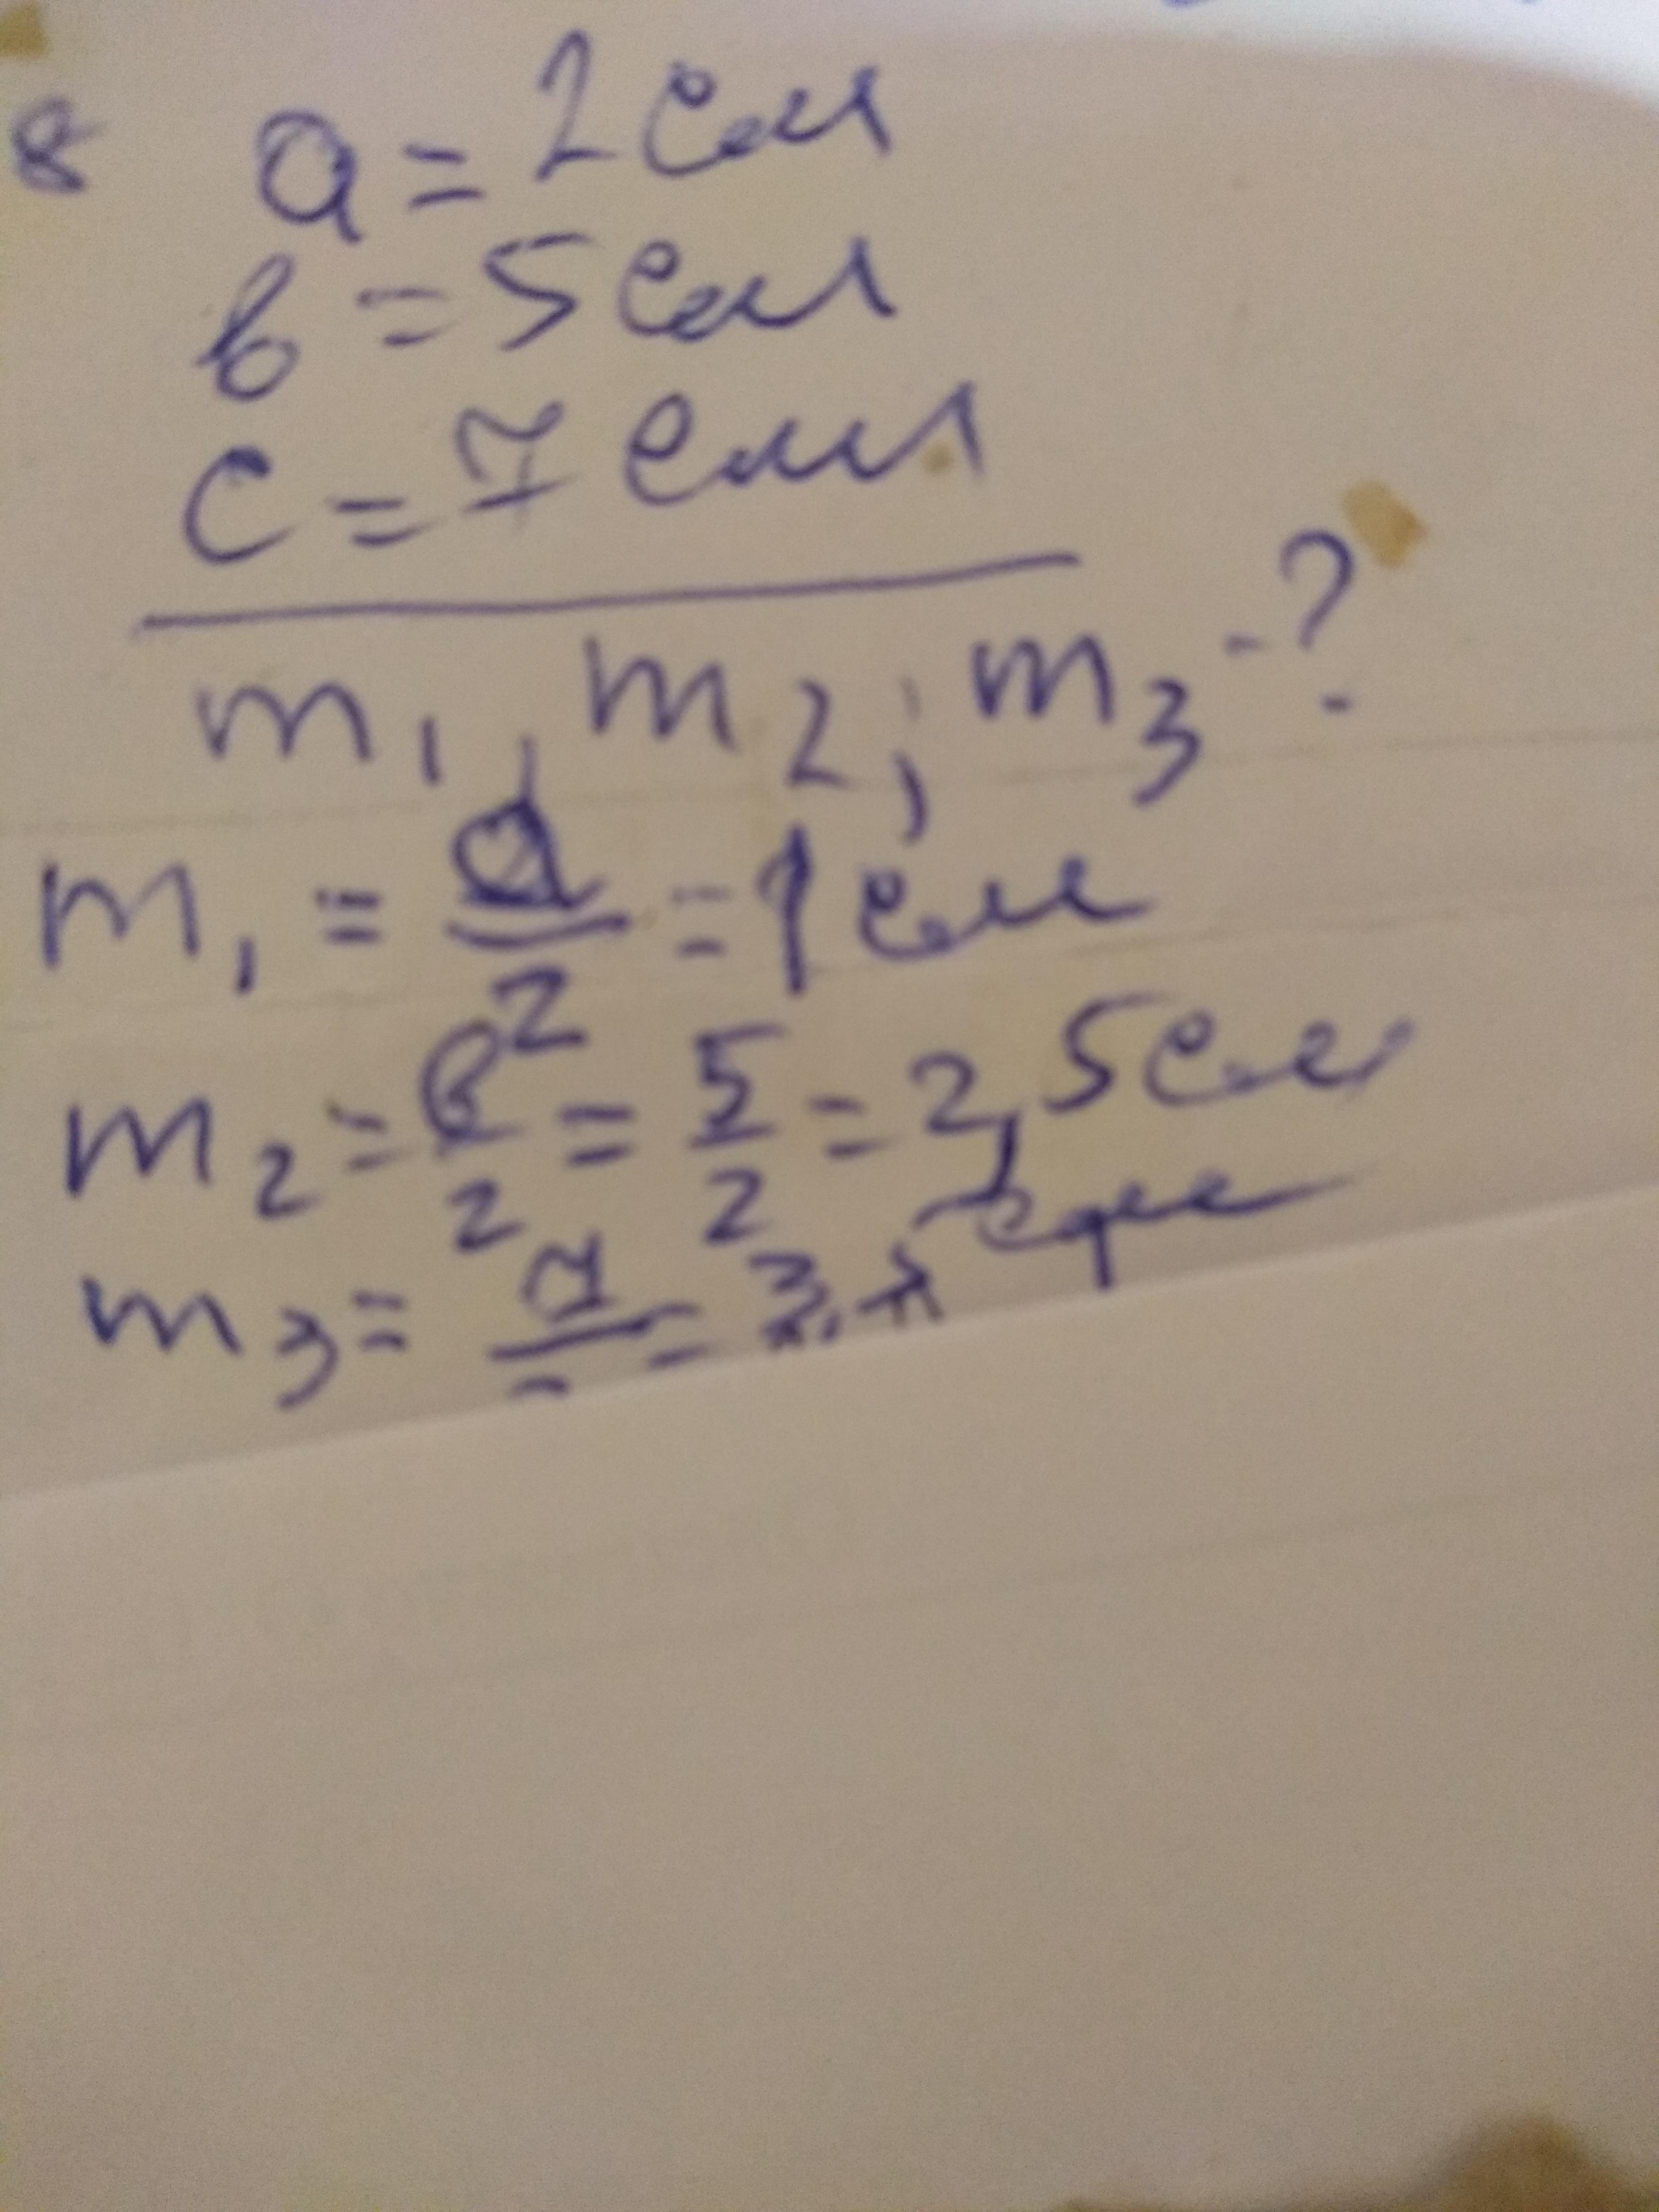 8 a = 2 см
b = 5 см
c = 7 см
m₁, m₂; m₃ - ?
m₁ = a/2 = 1 см
m₂ = b/2 = 5/2 = 2,5 см
m₃ = 7/2 = 3,5 см